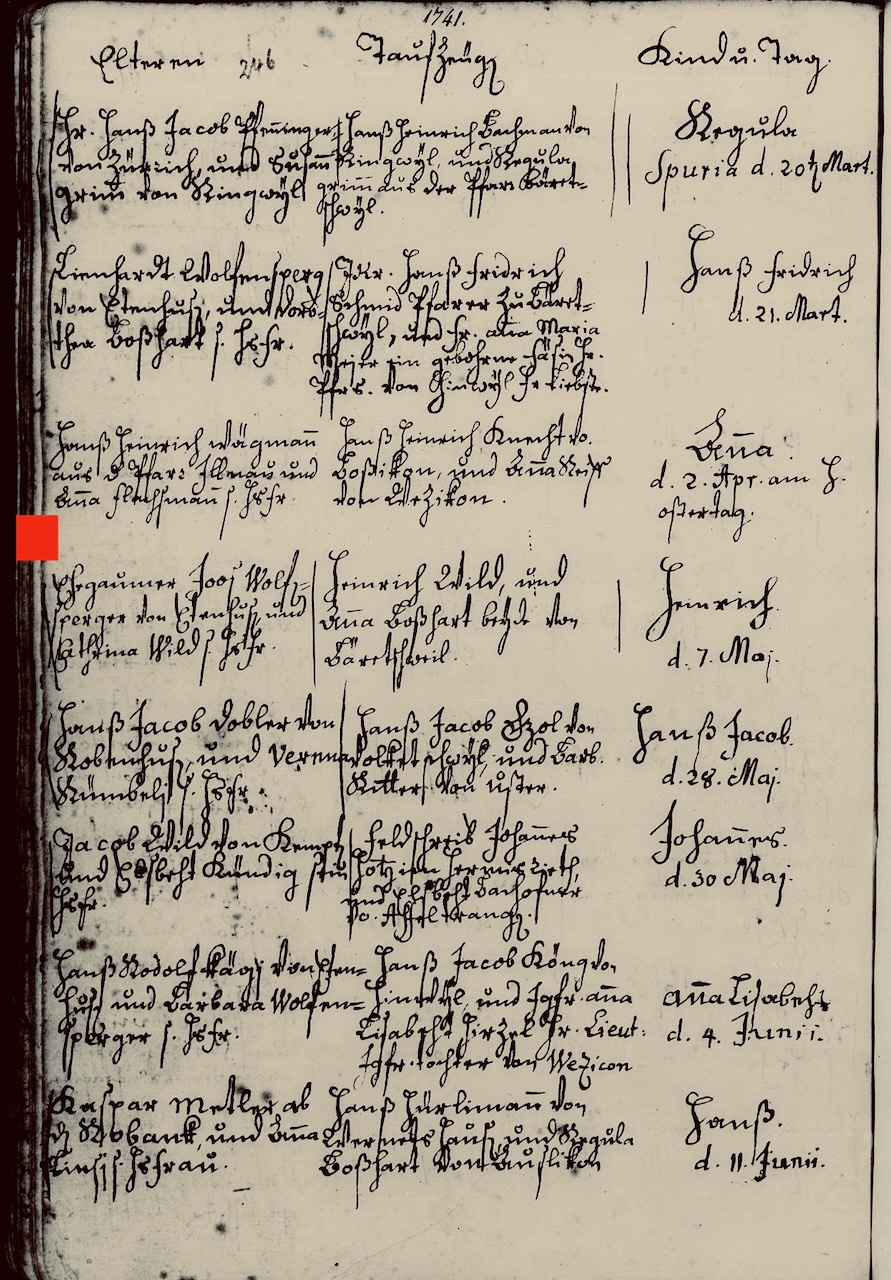 1741.
Elteren 246 Taufzeüg Kind u. Tag.
Hr. Hanß Jacob Pfenninger
von Zürich, und Susann
grim von Ringwÿl
Hanß Heinrich Bachman von
Ringwÿl, und Regula
grim aus der Pfarr Bäret-
schwÿl.
Regula
Spuria d. 20 Mart.
Lienhardt Wolfensperg
von Etenhus, und Doro-
thea Boßhart s. Hsfr.
Jkr. Hanß fridrich
Schmid Pfarer zu Bäret-
schwÿl, und fr. Maria
Meier ein gebohrne
Pfrs. von Hinwÿl Liebste.
Hanß fridrich
d. 21. Mart.
Hanß Heinrich wägmann
aus d Pfarr Illnau und
Anna flachsmann s. Hsfr.
Hanß Heinrich Knecht vo.
Boßikon, und Anna
von Wezikon.
Anna.
d. 2. Apr. am H.
ostertag.
Ehegaumer Joos Wolf-
sperger von Etenhus, und
Cathrina Wild s Hsfr.
Heinrich Wild, und
Anna Boßhart beyde von
Bäretschweil.
Heinrich.
d. 7. Maj.
Hanß Jacob Dobler von
Robenhus, und Verena
Kümbeli s. Hsfr.
Hanß Jacob von
Volketschwÿl, und Barb.
Ritter von uster.
Hanß Jacob.
d. 28. Maj.
Jacob Wild von Kempt
und Elsbeht Kündig
Hsfr.
feldschreib Johannes
Hotz
und Elsbeht Bachofner
vo.
Johannes.
d. 30 Maj.
Hanß Rodolf Kägi von Eten-
hus und Barbara Wolfen-
sperger s. Hsfr.
Hanß Jacob Köng vo
Hinwÿl, und Jgfr. anna
Lisabeht Hirzel Hr. Lieut:
Jgfr. tochter von Wezicon
anna Lisabeht
d. 4. Junii.
Kaspar Metler ab
Robank, und Anna
s. Hsfrau.
Hanß Hürlimann von
Wernets Haus, und Regula
Boßhart von Auslikon
Hanß.
d. 11. Junii.